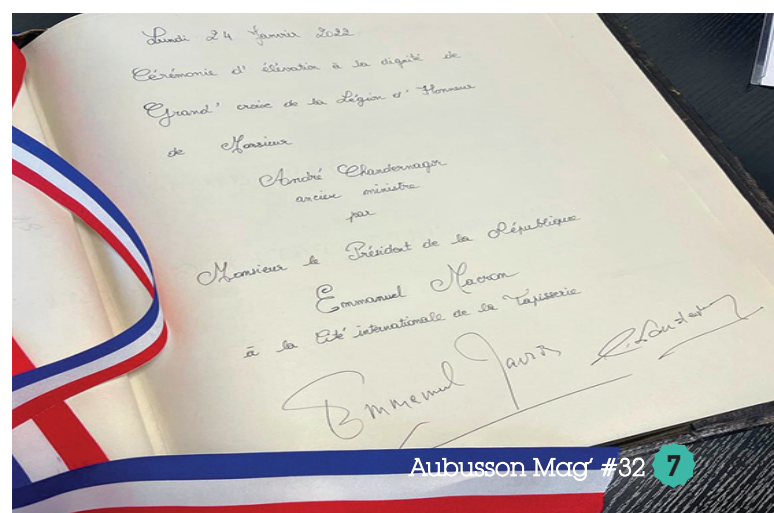 Lundi 24 Janvier 2022
Cérémonie d'élévation à la dignité de
Grand'croix de la Légion d'Honneur
de Monsieur
André Chandernagor
ancien ministre
par
Monsieur le Président de la République
Emmanuel Macron
à la Cité internationale de la Tapisserie
Emmanuel Macron
Aubusson Mag' #32 7